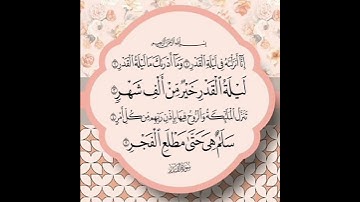 بسم الله الرحمن الرحيم
إِنَّا أَنزَلْنَٰهُ فِي لَيْلَةِ الْقَدْرِ ١ وَمَا أَدْرَىٰكَ مَا لَيْلَةُ الْقَدْرِ ٢
لَيْلَةُ الْقَدْرِ خَيْرٌ مِّنْ أَلْفِ شَهْرٍ ٣
تَنَزَّلُ الْمَلَٰٓئِكَةُ وَالرُّوحُ فِيهَا بِإِذْنِ رَبِّهِم مِّن كُلِّ أَمْرٍ ٤
سَلَٰمٌ هِيَ حَتَّىٰ مَطْلَعِ الْفَجْرِ ٥
سورة القدر